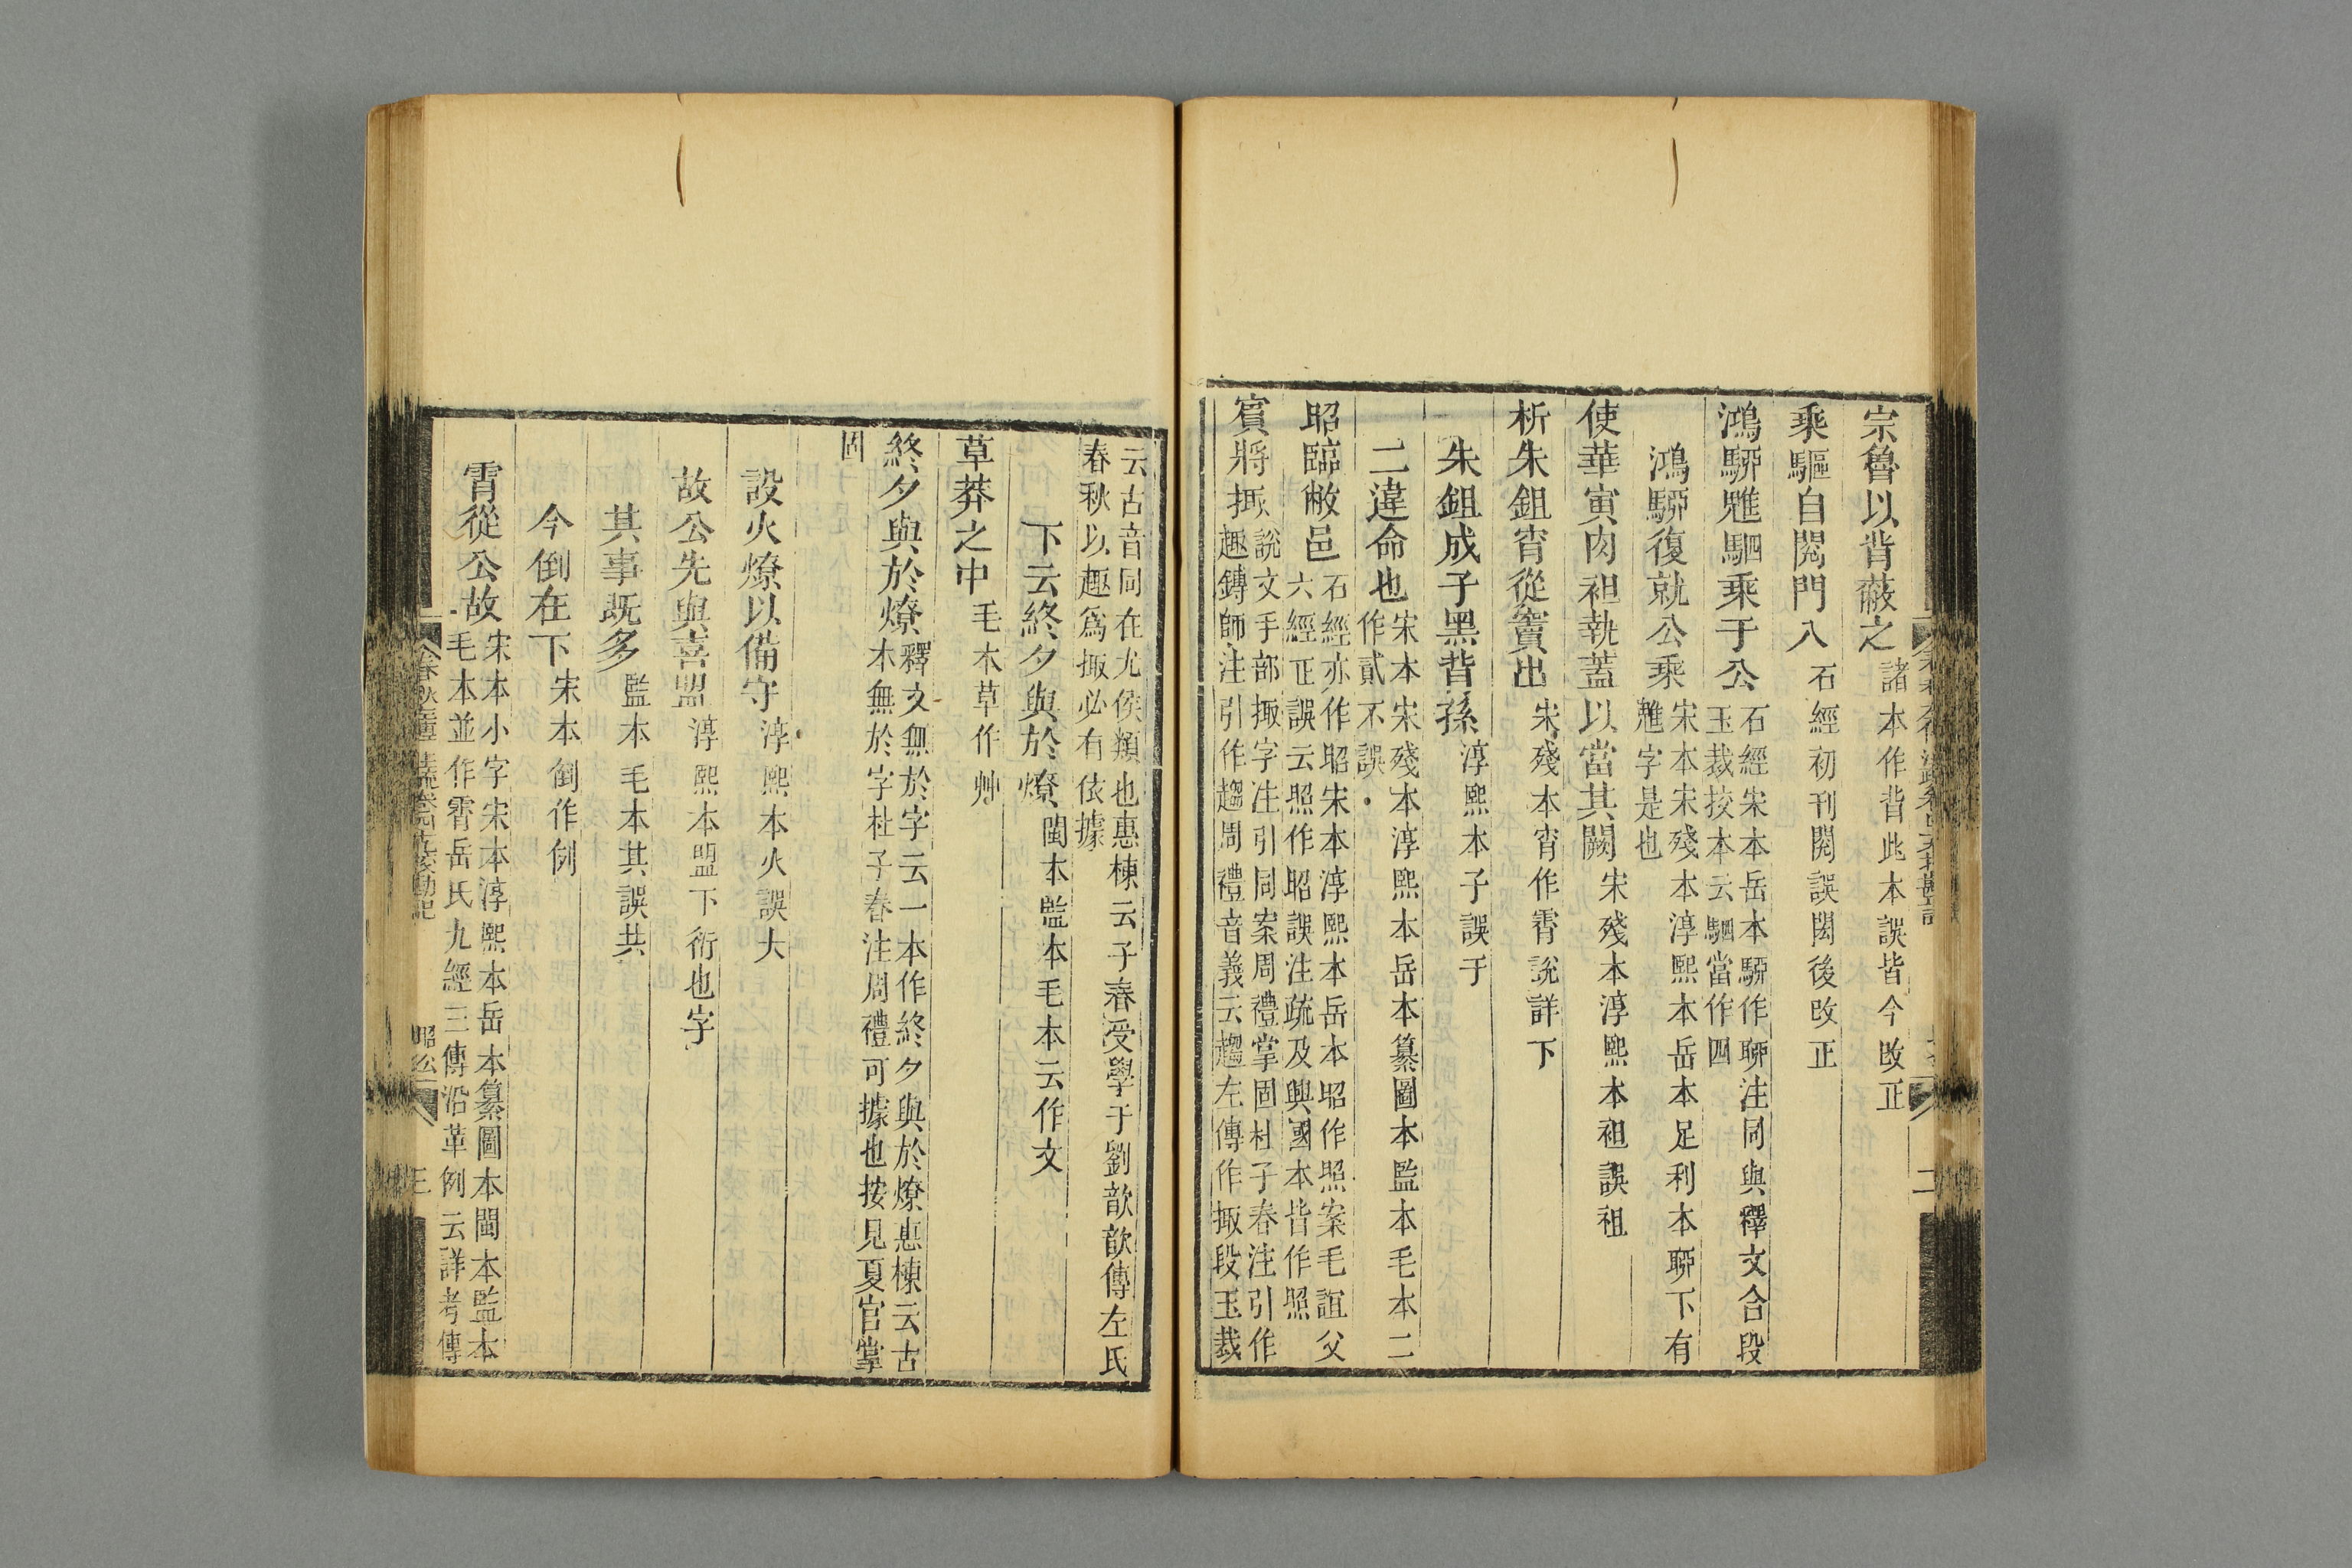 宗魯以背蔽之諸本作背此本誤皆今改正
乘驅自閱門入石經初刊閱誤閎後改正
鴻駵魋駟乘于公石經宋本岳本駵作聊注同與釋文合段
玉裁挍本云駟當作四
鴻駵復就公乘宋本宋殘本淳熙本岳本足利本聊下有
魋字是也
使華寅肉袒執蓋以當其闕宋殘本淳熙本袒誤祖
析朱鉏宵從竇出宋殘本宵作霄說詳下
朱鉏成子黑背孫淳熙本子誤于
二違命也宋本宋殘本淳熙本岳本纂圖本監本毛本二
作貳不誤
昭臨敝邑石經亦作昭宋本淳熙本岳本昭作照案毛誼父
六經正誤云照作昭誤注疏及興國本皆作照
賓將掫說文手部掫字注引同案周禮掌固杜子春注引作
趣鎛師注引作趨周禮音義云趨左傳作掫段玉裁
云古音同在尤侯類也惠棟云子春受學于劉歆歆傳左氏
春秋以趣爲掫必有依據
下云終夕與於燎閩本監本毛本云作文
草莽之中毛本草作艸
終夕與於燎釋文無於字云一本作終夕與於燎惠棟云古
本無於字杜子春注周禮可據也按見夏官掌
固
設火燎以備守淳熙本火誤大
故公先與喜盟淳熙本盟下衍也字
其事旣多監本毛本其誤共
今倒在下宋本倒作例
霄從公故宋本小字宋本淳熙本岳本纂圖本閩本監本
毛本並作霄岳氏九經三傳沿革例云詳考傳